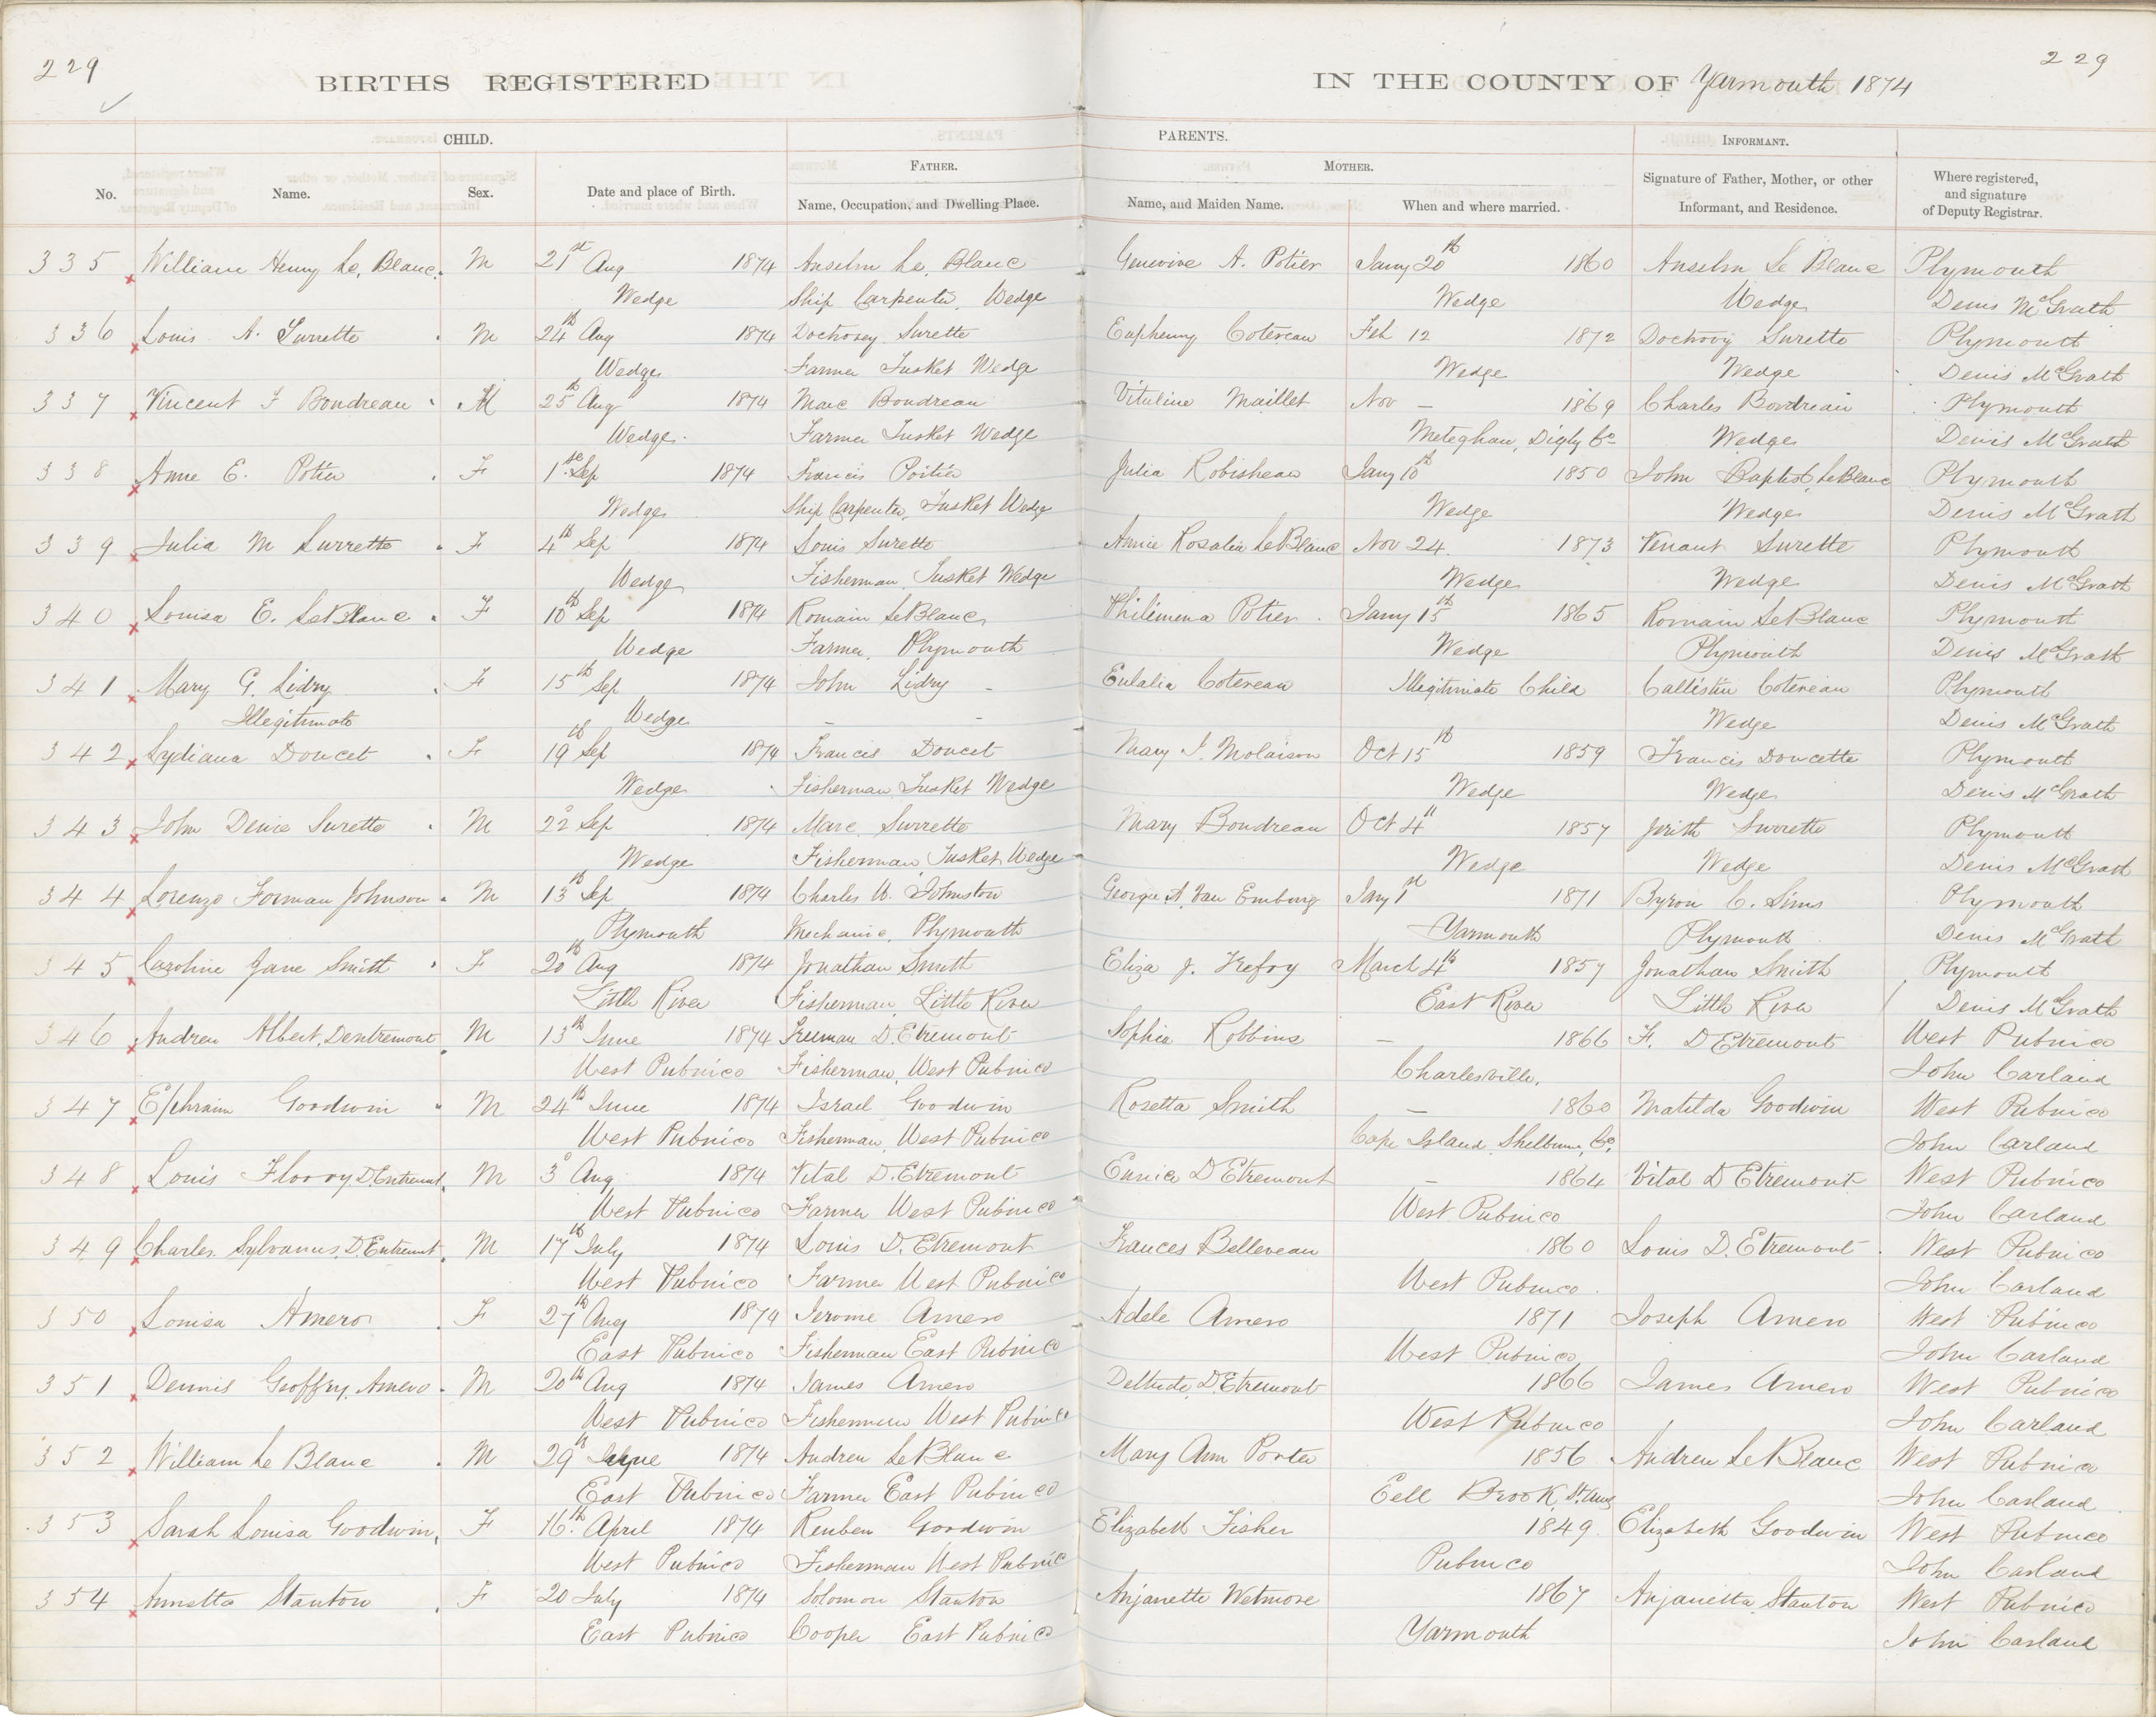 229
229
BIRTHS REGISTERED
IN THE COUNTY OF Yarmouth 1874
CHILD.
PARENTS.
INFORMANT.
FATHER.
MOTHER.
No.
Name.
Sex.
Date and place of Birth.
Name, Occupation, and Dwelling Place.
Name, and Maiden Name.
When and where married.
Signature of Father, Mother, or other Informant, and Residence.
Where registered, and signature of Deputy Registrar.
335 William Henry Le, Blanc. M 21st Aug 1874 Anselm Le, Blanc Genevive A. Potier Jany 20th 1860 Anselm Le Blanc Plymouth
Wedge Ship Carpenter, Wedge Wedge Wedge Denis McGrath
336 Louis A. Surrette M 24th Aug 1874 Surette Eupheny Cotereau Feb 12 1872 Surette Plymouth
Wedge Farmer Tusket Wedge Wedge Wedge Denis McGrath
337 Vincent F Boudreau M 25th Aug 1874 Marc Boudreau Vitaline Maillet Nov — 1869 Charles Boudreau Plymouth
Wedge. Farmer Tusket Wedge Meteghan, Digby Co Wedge Denis McGrath
338 Anne E. Potier F 1st Sep 1874 Francis Poitier Julia Robisheau Jany 10th 1850 John Baptist LeBlanc Plymouth
Wedge Ship Carpenter, Tusket Wedge Wedge Wedge Denis McGrath
339 Julia M Surrette F 4th Sep 1874 Louis Surette Annie Rosalie LeBlanc Nov 24. 1873 Venant Surette Plymouth
Wedge Fisherman, Tusket Wedge Wedge Wedge Denis McGrath
340 Louisa E. LeBlanc F 10th Sep 1874 Romain LeBlanc Philimena Potier Jany 15th 1865 Romain LeBlanc Plymouth
Wedge Farmer, Plymouth Wedge Plymouth Denis McGrath
341 Mary G. Lidry F 15th Sep 1874 John Lidry Eulalia Cotereau Illegitimate Child Cotereau Plymouth
Illegitimate Wedge — — Wedge Denis McGrath
342 Lydiana Doucet F 19th Sep 1874 Francis Doucet Mary I. Molaison Oct 15th 1859 Francis Doucette Plymouth
Wedge Fisherman Tusket Wedge Wedge Wedge Denis McGrath
343 John Denis Surette M 22o Sep 1874 Marc Surrette Mary Boudreau Oct 4th 1857 Surrette Plymouth
Wedge Fisherman, Tusket Wedge Wedge Wedge Denis McGrath
344 Lorenzo Forman Johnson M 13th Sep 1874 Charles W. Johnston Georgie A. Van Emburg Jany 1st 1871 Byron C. Sims Plymouth
Plymouth Mechanic, Plymouth Yarmouth Plymouth Denis McGrath
345 Caroline Jane Smith F 20th Aug 1874 Jonathan Smith Eliza J. Trefry March 4th 1857 Jonathan Smith Plymouth
Little River Fisherman, Little River East River Little River Denis McGrath
346 Andrew Albert, Dentremont M 13th June 1874 Freeman D. Etremont Sophia Robbins — 1866 F. D Etremont West Pubnico
West Pubnico Fisherman, West Pubnico Charlesville. John Carland
347 Ephraim Goodwin M 24th June 1874 Israel Goodwin Rosetta Smith — 1860 Matilda Goodwin West Pubnico
West Pubnico Fisherman, West Pubnico Cape Island, Shelburne, Co. John Carland
348 Louis D.Entremt. M 3o Aug 1874 Vital D.Etremont Eunice D Etremont — 1864 Vital D Etremont West Pubnico
West Pubnico Farmer West Pubnico West Pubnico John Carland
349 Charles Sylvanus, D.Entremt. M 17th July 1874 Louis D. Etremont Frances Belleveau 1860 Louis D. Etremont West Pubnico
West Pubnico Farmer West Pubnico West Pubnico John Carland
350 Louisa Amero F 27th Aug 1874 Jerome Amero Adele Amero 1871 Joseph Amero West Pubnico
East Pubnico Fisherman East Pubnico West Pubnico John Carland
351 Dennis Geoffry, Amero M 20th Aug 1874 James Amero D.Etremont 1866 James Amero West Pubnico
West Pubnico Fisherman West Pubnico West Pubnico John Carland
352 William Le Blanc M 29th 1874 Andrew LeBlanc Mary Ann Porter 1856 Andrew LeBlanc West Pubnico
East Pubnico Farmer East Pubnico Eell Brook, St. Anns John Carland
353 Sarah Louisa Goodwin, F 16th April 1874 Reuben Goodwin Elizabeth Fisher 1849 Elizabeth Goodwin West Pubnico
West Pubnico Fisherman West Pubnico Pubnico John Carland
354 Annetta Stanton F 20 July 1874 Solomon Stanton Anjanette Wetmore 1867 Anjanetta Stanton West Pubnico
East Pubnico Cooper East Pubnico Yarmouth John Carland